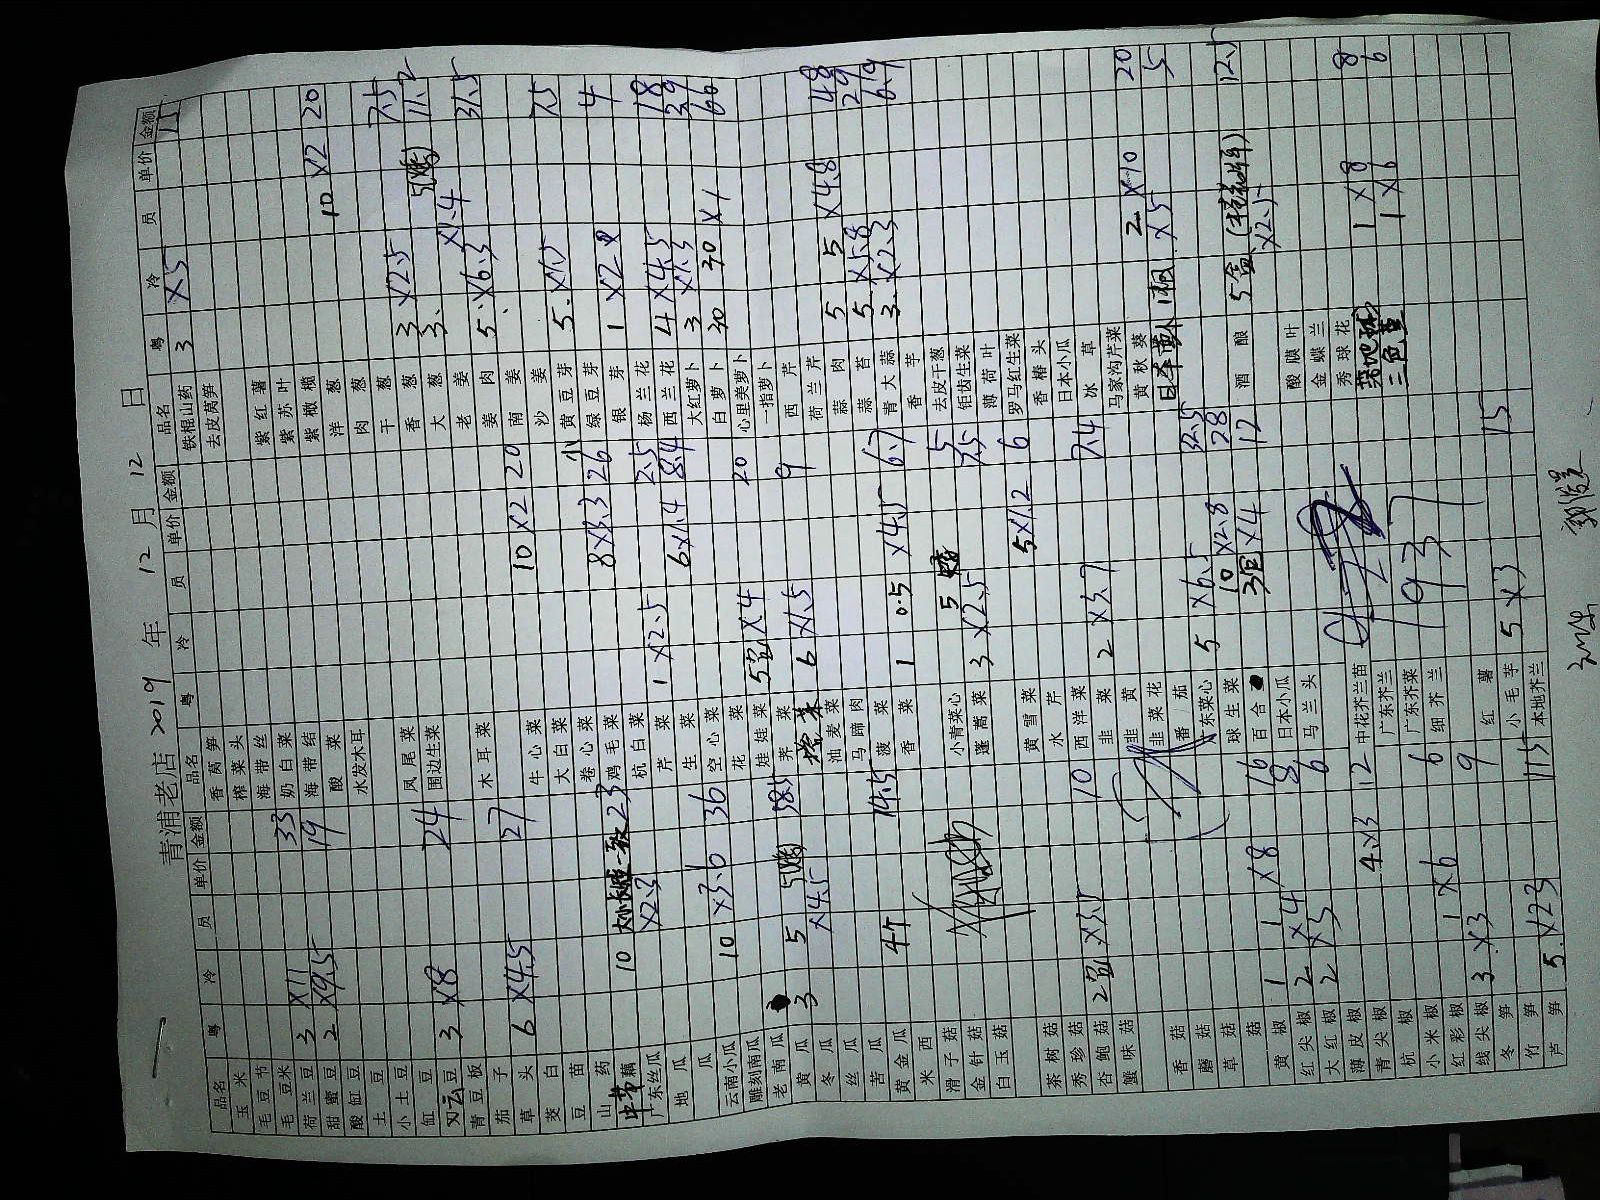 青浦老店 2019 年 12 月 12 日
品名 粤 冷 员 单价 金额
玉米
毛豆节
毛豆米
荷兰豆 3 ×11 33
甜蜜豆 2 ×9.5 19
酸豇豆
土豆
小土豆
豇豆
云豆 3 ×8 24
青豆板
茄子
草头 6 ×4.5 27
茭白
豆苗
山药
中节藕 10 大小长短一致 ×2.3 23
广东丝瓜
地瓜
瓜
云南小瓜 10 ×3.6 36
雕刻南瓜
老南瓜
黄瓜 3 5 ×4.5 38.5
冬瓜
丝瓜
苦瓜 4个 14.5
黄金瓜
米西
滑子菇
金针菇
白玉菇
茶树菇
秀珍菇
杏鲍菇 2盒 10
蟹味菇
香菇
蘑菇
草菇
黄椒 1 1 ×8 16
红尖椒 2 ×4 8
大红椒 2 ×3 6
薄皮椒 4 ×3 12
青尖椒
杭椒
小米椒 1 ×6 6
红彩椒
线尖椒 3 ×3 9
冬笋
竹笋
芦笋 5 ×23 115
品名 粤 冷 员 单价 金额
香莴笋
榨菜头
海带丝
奶白菜
海带结
酸菜
水发木耳
凤尾菜
围边生菜
木耳菜
牛心菜 10 ×2 20
大白菜
卷心菜
鸡毛菜 8 ×3.3 26
杭白菜
芹菜 1 ×2.5 2.5
生菜 6 ×1.4 8.4
空心菜
花菜
娃娃菜 5盒 ×4 20
荠菜
6 ×1.5 9
油麦菜
马蹄肉
菠菜
香菜 1 0.5 ×4.5 6.7
小青菜心 5 5
蓬蒿菜 3 ×2.5 7.5
黄雪菜 5 ×1.2 6
水芹
西洋菜
韭菜 2 ×3.7 7.4
韭黄
韭菜花
番茄
广东菜心 5 ×6.5 32.5
球生菜 10 ×2.8 28
百合 3包 ×4 12
日本小瓜
马兰头
中花芥兰苗
广东芥兰
广东芥菜
细芥兰
红薯
小毛芋 5 ×3 15
本地芥兰
937
品名 粤 冷 员 单价 金额
铁棍山药 3 ×5 15
去皮莴笋
紫红薯
紫苏叶
紫橄榄 10 ×2 20
洋葱
肉葱
干葱 3 ×2.5 7.5
香葱 3 ×1.4 11.2
大葱
老姜 5 ×6.3 31.5
姜肉
南姜
沙姜 5 ×1.5 7.5
黄豆芽
绿豆芽 4
银芽 1
杨兰花
西兰花 4 ×4.5 18
大红萝卜 3 ×1.3 3.9
白萝卜 30 30 ×1 60
心里美萝卜
一指萝卜
西芹
荷兰芹
蒜肉 5 5 ×4.8 48
蒜苔 5 ×5.8 29
青大蒜 3 ×2.3 6.9
香芋
去皮干葱
钜齿生菜
薄荷叶
罗马红生菜
香椿头
日本小瓜
冰草
马家沟芹菜
黄秋葵 2 ×10 20
日本 ×5 5
酒酿 5盒 ×2.5 12.5
酸膜叶
金蝶兰
秀球花
1 ×8 8
三色堇 1 ×6 6